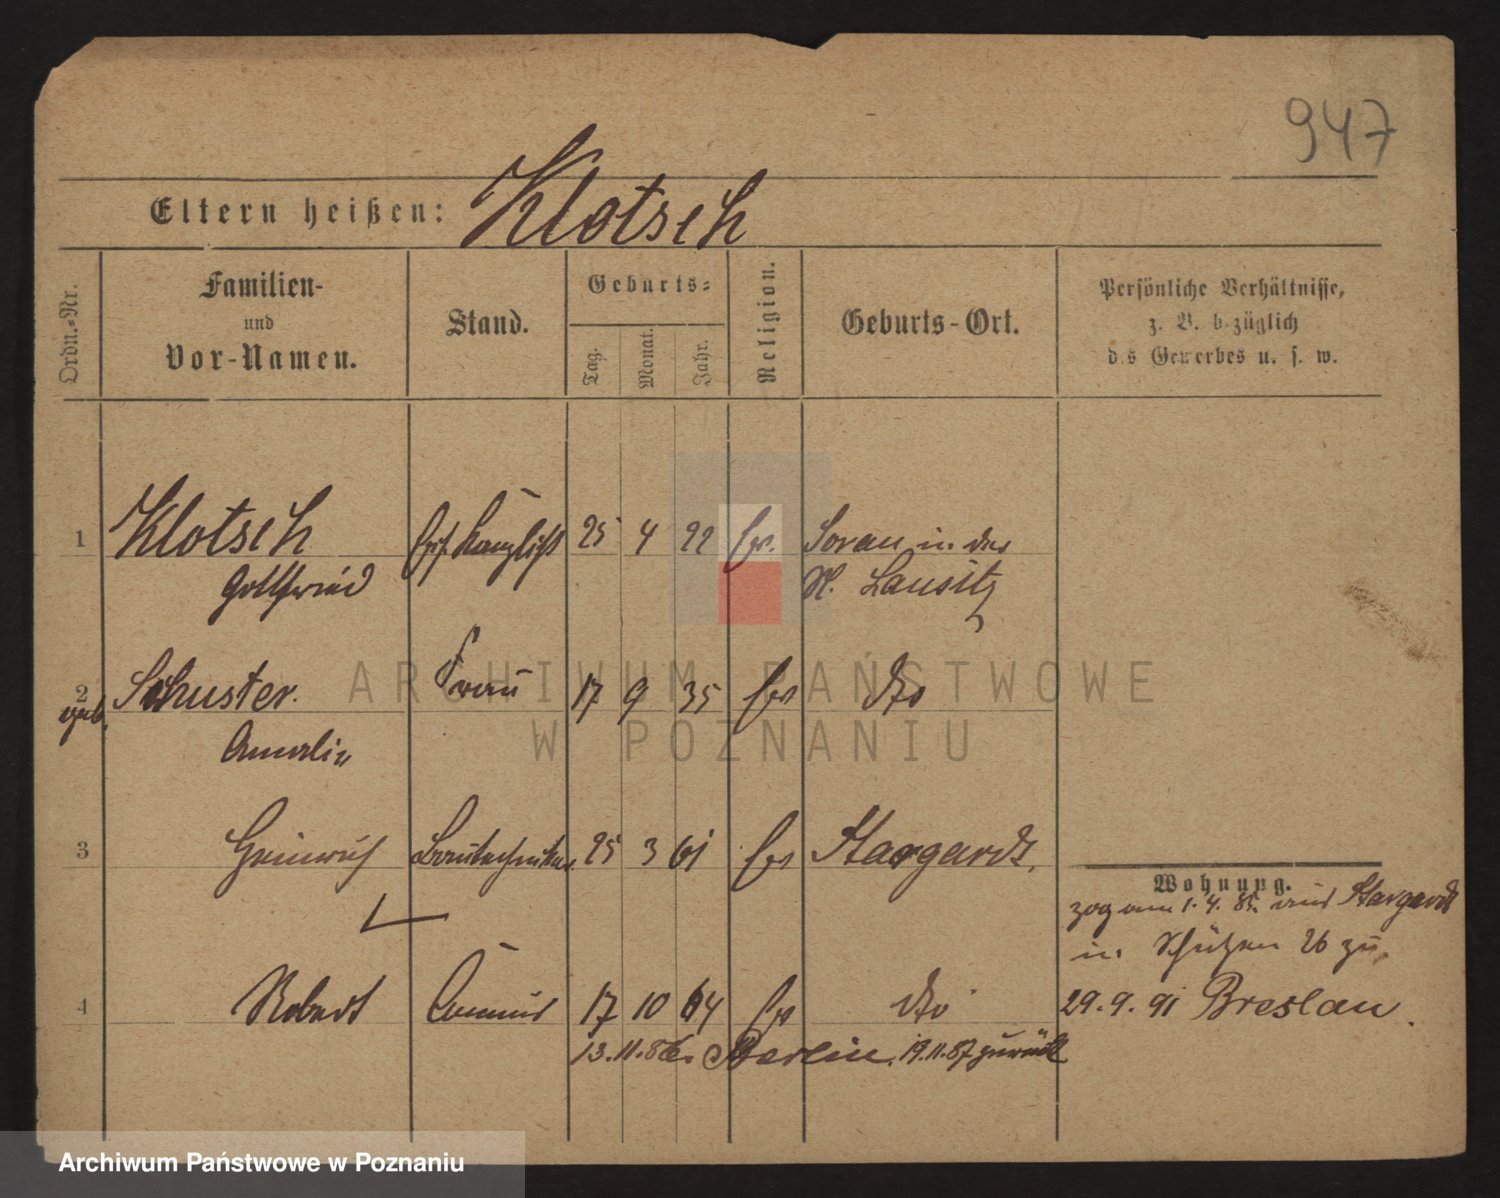 947
Eltern heißen: Klotsch
Ordn.-Nr.
Familien-
und
Vor-Namen.
Stand.
Geburts-
Tag.
Monat.
Jahr.
Religion.
Geburts-Ort.
Persönliche Verhältnisse,
z. B. bezüglich
des Gewerbes u. s. w.
1 Klotsch Kanzlist 25 4 22 ev. Sorau in der
Gottfried N. Lausitz
2 Schuster Frau 17 9 35 ev dto
geb.
Amalie
3 Heinrich Bautechniker 25 3 61 ev Stargardt,
Wohnung.
zog am 1.4.85. aus Stargardt
in Schützen 26 zu,
4 Robert 17 10 64 ev dto 29.9.91 Breslau.
13.11.86. Berlin, 19.11.87 zurück
ARCHIWUM PAŃSTWOWE
W POZNANIU
Archiwum Państwowe w Poznaniu